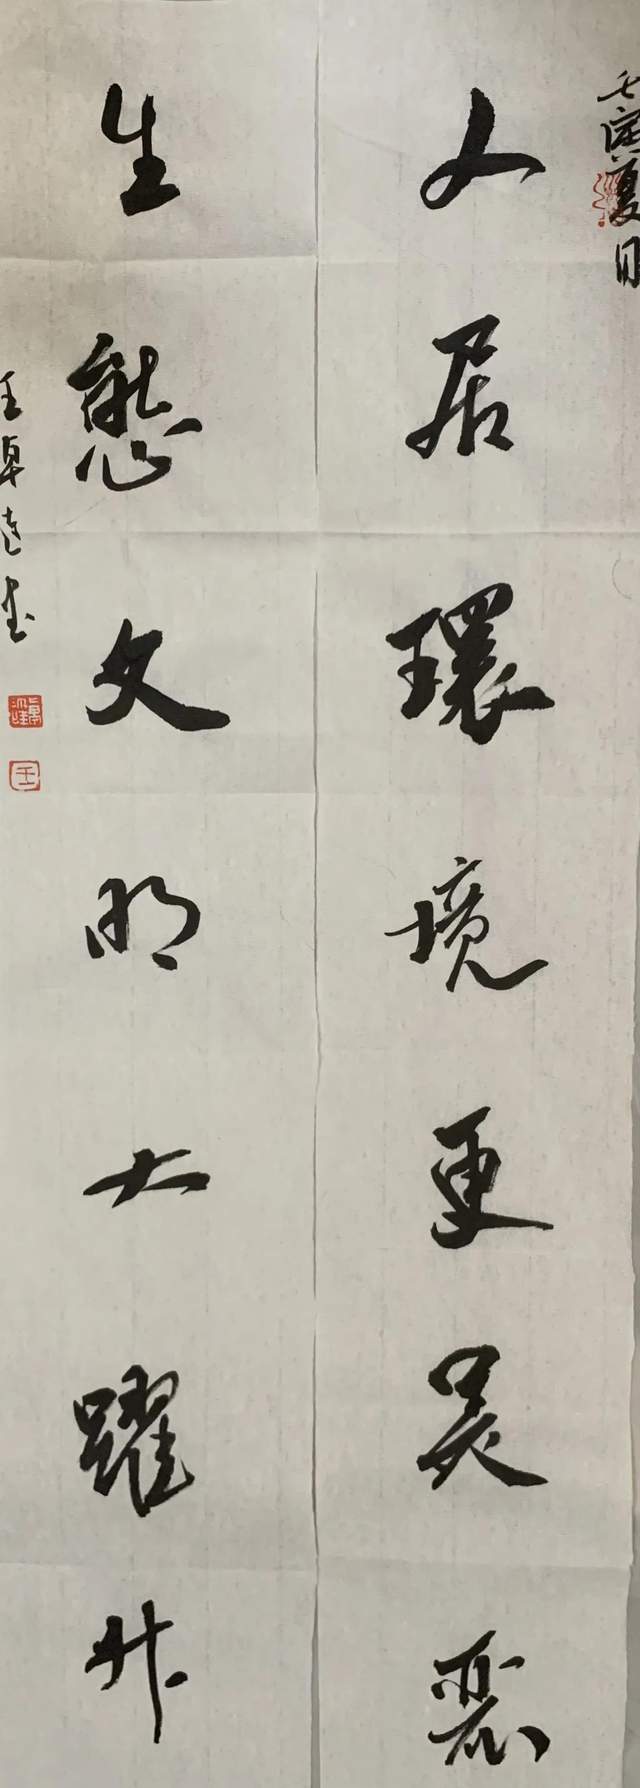 壬寅夏日
人居環境更美麗
生態文明大躍升
王卓書
王